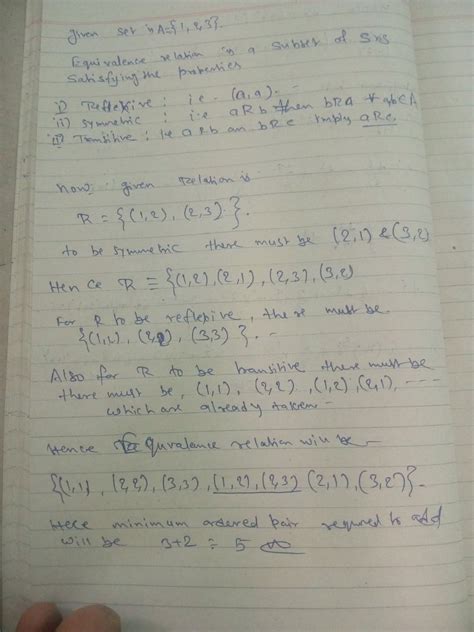 given set is A={1,2,3}.
Equivalence relation is a subset of SxS
satisfying the properties
i) Reflexive : i.e. (a,a).
ii) symmetric : i.e aRb then bRA ∀ a,b∈A
iii) Transitive : i.e aRb an bRc imply aRc.
now given relation is
R = {(1,2), (2,3)}.
to be symmetric there must be (2,1) & (3,2)
Hence R ≡ {(1,2),(2,1), (2,3),(3,2)
For R to be reflexive, there must be.
{(1,1), (2,2), (3,3)}. -
Also for R to be transitive there must be
there must be, (1,1), (2,2), (1,2) (2,1), ----
which are already taken -
Hence Equvalance relation will be
{(1,1), (2,2), (3,3), (1,2), (2,3) (2,1), (3,2)}-
Hece minimum ordered pair required to add
will be 3+2 = 5